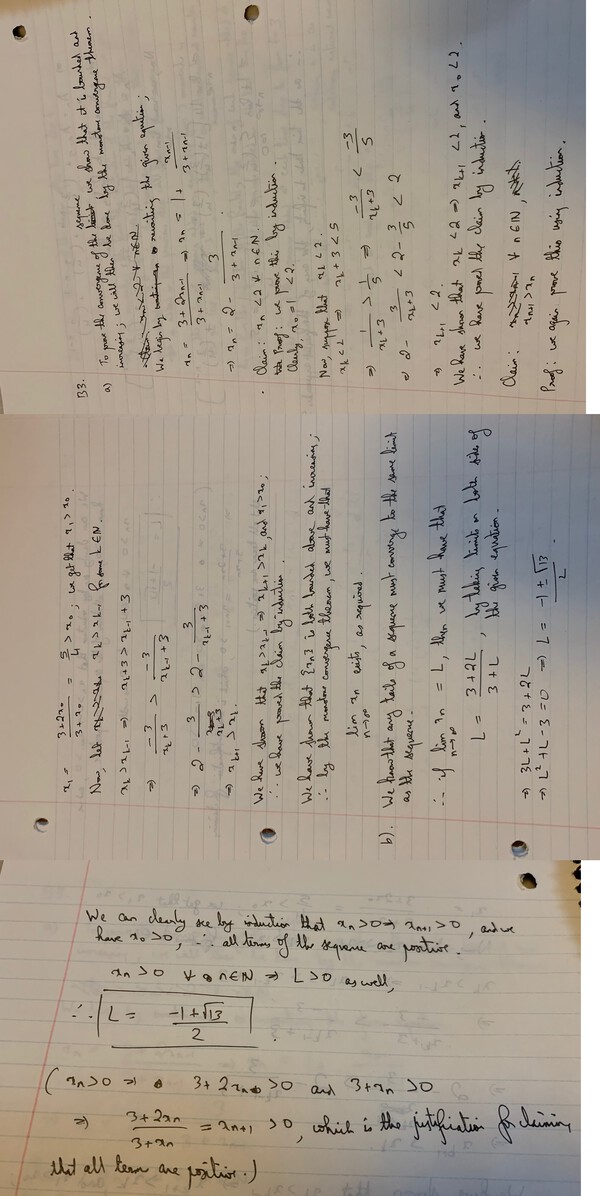 B3.
a) To prove the convergence of the sequence we show that it is bounded and
increasing; we will then be done by the monotone convergence theorem.
We begin by rewriting the given equation;
xₙ = (3 + 2xₙ₋₁)/(3 + xₙ₋₁) ⇒ xₙ = 1 + xₙ₋₁/(3 + xₙ₋₁)
⇒ xₙ = 2 - 3/(3 + xₙ₋₁)
Claim: xₙ < 2 ∀ n∈ℕ.
Proof: we prove this by induction.
Clearly, x₀ = 1 < 2.
Now, suppose that xₖ < 2.
xₖ < 2 ⇒ xₖ + 3 < 5
⇒ 1/(xₖ + 3) > 1/5 ⇒ -3/(xₖ + 3) < -3/5
⇒ 2 - 3/(xₖ + 3) < 2 - 3/5 < 2
⇒ xₖ₊₁ < 2.
We have shown that xₖ < 2 ⇒ xₖ₊₁ < 2, and x₀ < 2.
∴ we have proved the claim by induction.
Claim: xₙ₊₁ > xₙ ∀ n∈ℕ,
Proof: we again prove this using induction.
x₁ = (3 + 2x₀)/(3 + x₀) = 5/4 > x₀; we get that x₁ > x₀.
Now, let xₖ > xₖ₋₁ for some k∈ℕ.
xₖ > xₖ₋₁ ⇒ xₖ + 3 > xₖ₋₁ + 3
⇒ -3/(xₖ + 3) > -3/(xₖ₋₁ + 3)
⇒ 2 - 3/(xₖ + 3) > 2 - 3/(xₖ₋₁ + 3)
⇒ xₖ₊₁ > xₖ.
We have shown that xₖ > xₖ₋₁ ⇒ xₖ₊₁ > xₖ, and x₁ > x₀;
∴ we have proved the claim by induction.
We have shown that {xₙ} is both bounded above and increasing;
∴ by the monotone convergence theorem, we must have that
lim n→∞ xₙ exists, as required.
b). We know that any tails of a sequence must converge to the same limit
as the sequence.
∴ if lim n→∞ xₙ = L, then we must have that
L = (3 + 2L)/(3 + L), by taking limits on both sides of
the given equation.
⇒ 3L + L² = 3 + 2L
⇒ L² + L - 3 = 0 ⇒ L = (-1 ± √13)/2
We can clearly see by induction that xₙ > 0 ⇒ xₙ₊₁ > 0, and we
have x₀ > 0, ∴ all terms of the sequence are positive.
xₙ > 0 ∀ n∈ℕ ⇒ L > 0 as well,
∴ L = (-1 + √13)/2.
(xₙ > 0 ⇒ 3 + 2xₙ > 0 and 3 + xₙ > 0
⇒ (3 + 2xₙ)/(3 + xₙ) = xₙ₊₁ > 0, which is the justification for claiming
that all term are positive.)